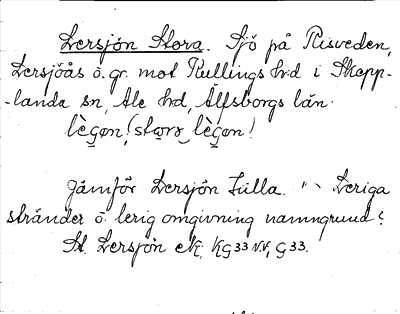 Lersjön Stora. Sjö på Risveden,
Lersjöås ö. gr. mot Kullings hd i Skepp-
-landa sn, Ale hd, Älfsborgs län.
Jämför Lersjön Lilla. Leriga
stränder o. lerig omgivning namngrund?
St. Lersjön ek, KG33 N.V., G33.